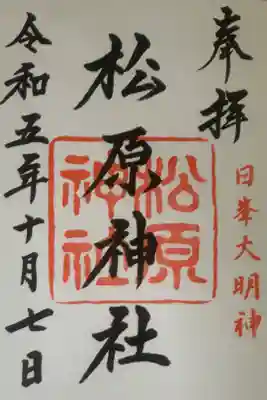 奉拝
日峯大明神
松原神社
松原
神社
令和五年十月七日